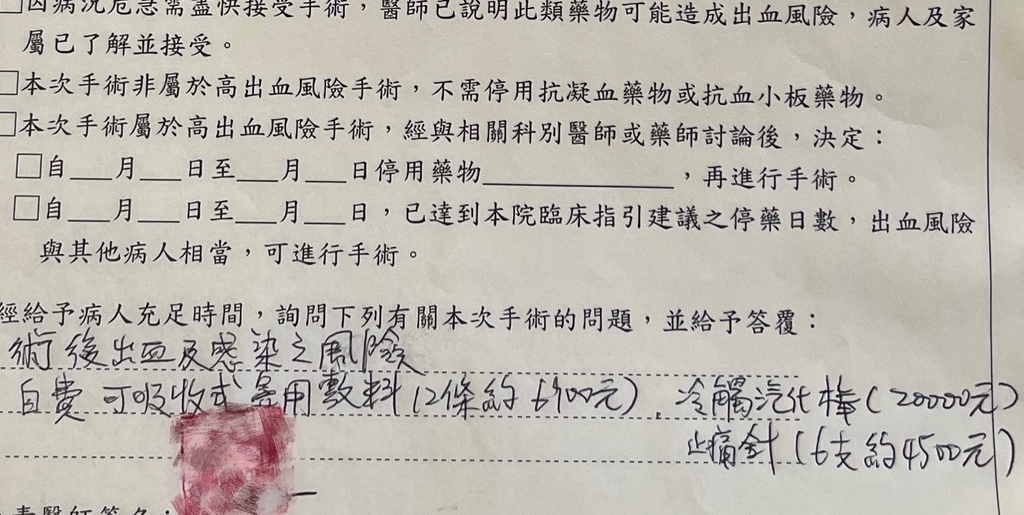 □因病況危急需盡快接受手術，醫師已說明此類藥物可能造成出血風險，病人及家
屬已了解並接受。
□本次手術非屬於高出血風險手術，不需停用抗凝血藥物或抗血小板藥物。
□本次手術屬於高出血風險手術，經與相關科別醫師或藥師討論後，決定：
□自___月___日至___月___日停用藥物______________，再進行手術。
□自___月___日至___月___日，已達到本院臨床指引建議之停藥日數，出血風險
與其他病人相當，可進行手術。
經給予病人充足時間，詢問下列有關本次手術的問題，並給予答覆：
術後出血及感染之風險
自費 可吸收式 用敷料(2條約6900元)、冷觸汽化棒(20000元)
止痛針(6支約4500元)
醫師簽名：